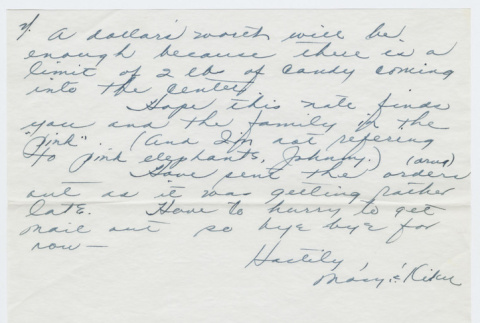 2/. A dollar's worth will be
enough because there is a
limit of 2 lb of candy coming
into the center.
Hope this note finds
you and the family in the
"pink". (And I'm not refering
to pink elephants, Johnny.)
Have sent the orders
out as it was getting rather
late. Have to hurry to get
mail out so bye bye for
now—
Hastily,
Mary & Kiku